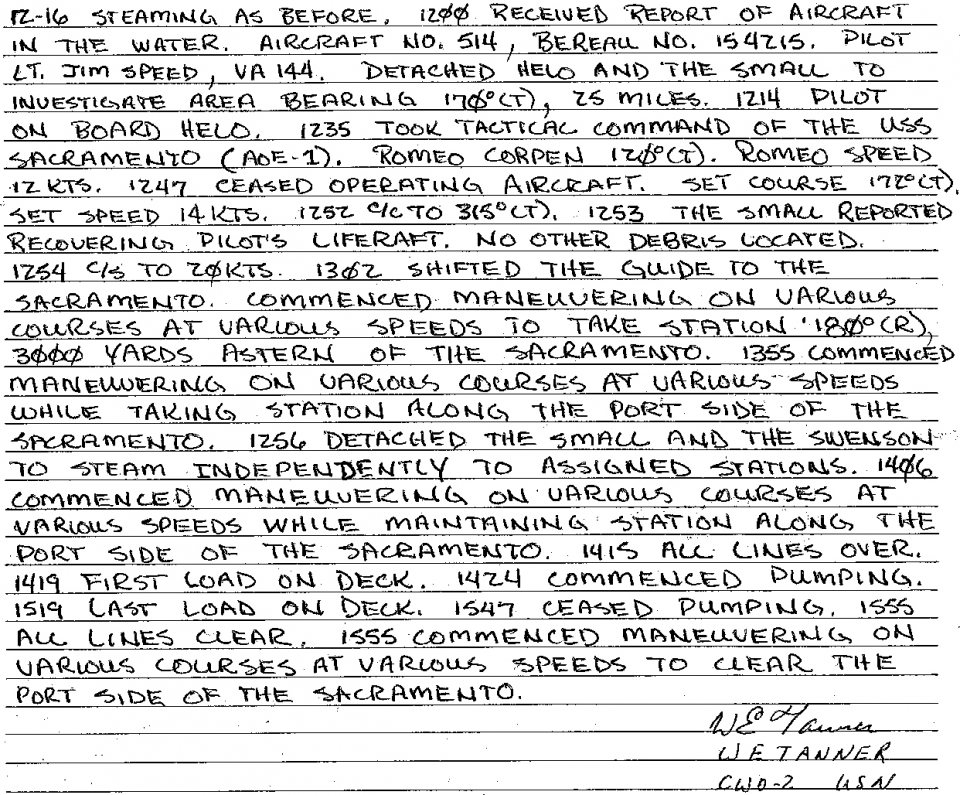 12-16 STEAMING AS BEFORE. 12ØØ RECEIVED REPORT OF AIRCRAFT
IN THE WATER. AIRCRAFT NO. 514, BEREAU NO. 154215. PILOT
LT. JIM SPEED, VA 144. DETACHED HELO AND THE SMALL TO
INVESTIGATE AREA BEARING 17Ø°(T), 25 MILES. 1214 PILOT
ON BOARD HELO. 1235 TOOK TACTICAL COMMAND OF THE USS
SACRAMENTO (AOE-1). ROMEO CORPEN 12Ø°(T). ROMEO SPEED
12 KTS. 1247 CEASED OPERATING AIRCRAFT. SET COURSE 172°(T),
SET SPEED 14 KTS. 1252 C/C TO 315°(T). 1253 THE SMALL REPORTED
RECOVERING PILOT'S LIFERAFT. NO OTHER DEBRIS LOCATED.
1254 C/S TO 2ØKTS. 13Ø2 SHIFTED THE GUIDE TO THE
SACRAMENTO. COMMENCED MANEUVERING ON VARIOUS
COURSES AT VARIOUS SPEEDS TO TAKE STATION 18Ø°(R),
3ØØØ YARDS ASTERN OF THE SACRAMENTO. 1355 COMMENCED
MANEUVERING ON VARIOUS COURSES AT VARIOUS SPEEDS
WHILE TAKING STATION ALONG THE PORT SIDE OF THE
SACRAMENTO. 1256 DETACHED THE SMALL AND THE SWENSON
TO STEAM INDEPENDENTLY TO ASSIGNED STATIONS. 14Ø6
COMMENCED MANEUVERING ON VARIOUS COURSES AT
VARIOUS SPEEDS WHILE MAINTAINING STATION ALONG THE
PORT SIDE OF THE SACRAMENTO. 1415 ALL LINES OVER.
1419 FIRST LOAD ON DECK. 1424 COMMENCED PUMPING.
1519 LAST LOAD ON DECK. 1547 CEASED PUMPING. 1555
ALL LINES CLEAR. 1555 COMMENCED MANEUVERING ON
VARIOUS COURSES AT VARIOUS SPEEDS TO CLEAR THE
PORT SIDE OF THE SACRAMENTO.
WE Tanner
W E TANNER
CWO-2 USN